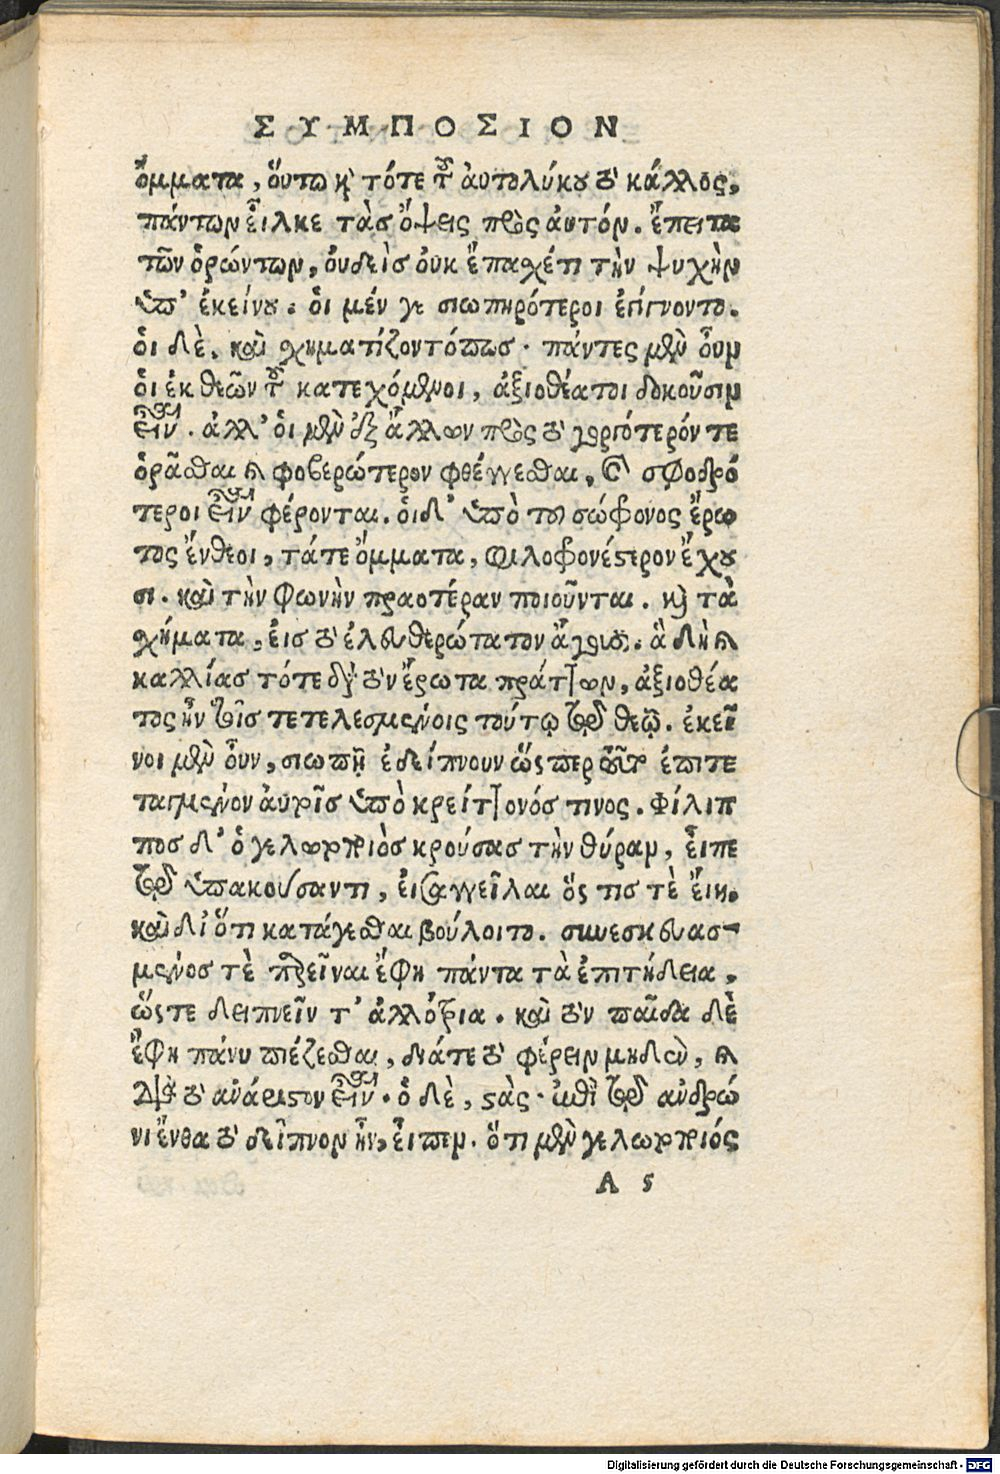 ΣΥΜΠΟΣΙΟΝ
ὄμματα, ὅυτω καὶ τότε τοῦ ἀυτολύκου τὸ κάλλος,
πάντων εἷλκε τὰσ ὄψεις πρὸς ἀυτόν. ἔπειτα
τῶν ὁρώντων, ὀυδεὶσ ὀυκ ἔπαχέ τι τὴν ψυχὴν
ὑπ' ἐκείνου. ὁι μέν γε σιωπηρότεροι ἐγίγνοντο.
ὁι δὲ, καὶ ἐχηματίζοντό πωσ. πάντες μὲν ὀυν
ὁι ἐκ θεῶν του κατεχόμενοι, ἀξιοθέατοι δοκοῦσιν
εἶναι. ἀλλ' ὁι μὲν ἐξ ἄλλων πρὸς τὸ γοργότερόν τε
ὁρᾶσθαι καὶ φοβερώτερον φθέγγεσθαι, καὶ σφοδρό
τεροι εἶναι φέρονται. ὁι δ' ὑπὸ του σώφρονος ἔρω
τος ἔνθεοι, τάτε ὄμματα, φιλοφρονέστερον ἔχου
σι. καὶ τὴν φωνὴν πραοτέραν ποιοῦνται. καὶ τὰ
σχήματα, ἐισ τὸ ἐλευθερώτατον ἄγουσι. ἃ δὴ καὶ
καλλίασ τότε διὰ τὸν ἔρωτα πράττων, ἀξιοθέα
τος ἦν τοῖσ τετελεσμένοις τούτῳ τῷ θεῷ. ἐκεῖ
νοι μὲν ὀυν, σιωπῇ ἐδείπνουν ὥσπερ τοῦτο ἐπιτε
ταγμένον ἀυτοῖσ ὑπὸ κρείττονός τινος. Φίλιπ
ποσ δ' ὁ γελωτοποιὸσ κρούσασ τὴν θύραν, εἶπε
τῷ ὑπακούσαντι, ἐισαγγεῖλαι ὅς τισ τὲ ἔιη.
καὶ δι' ὅτι κατάγεσθαι βούλοιτο. συνεσκευασ-
μένοσ τὲ παρεῖναι ἔφη πάντα τὰ ἐπιτήδεια,
ὥστε δειπνεῖν τ' ἀλλότρια. καὶ τὸν παῖδα δὲ
ἔφη πάνυ πιέζεσθαι, διάτε τὸ φέρειν μηδὲν, καὶ
διὰ τὸ ἀνάριστον εἶναι. ὁ δὲ, στὰς ἐπὶ τῷ ἀνδρώ
νι ἔνθα τὸ δεῖπνον ἦν, εἶπεν. ὅτι μὲν γελωτοποιός
A 5
Digitalisierung gefördert durch die Deutsche Forschungsgemeinschaft - DFG